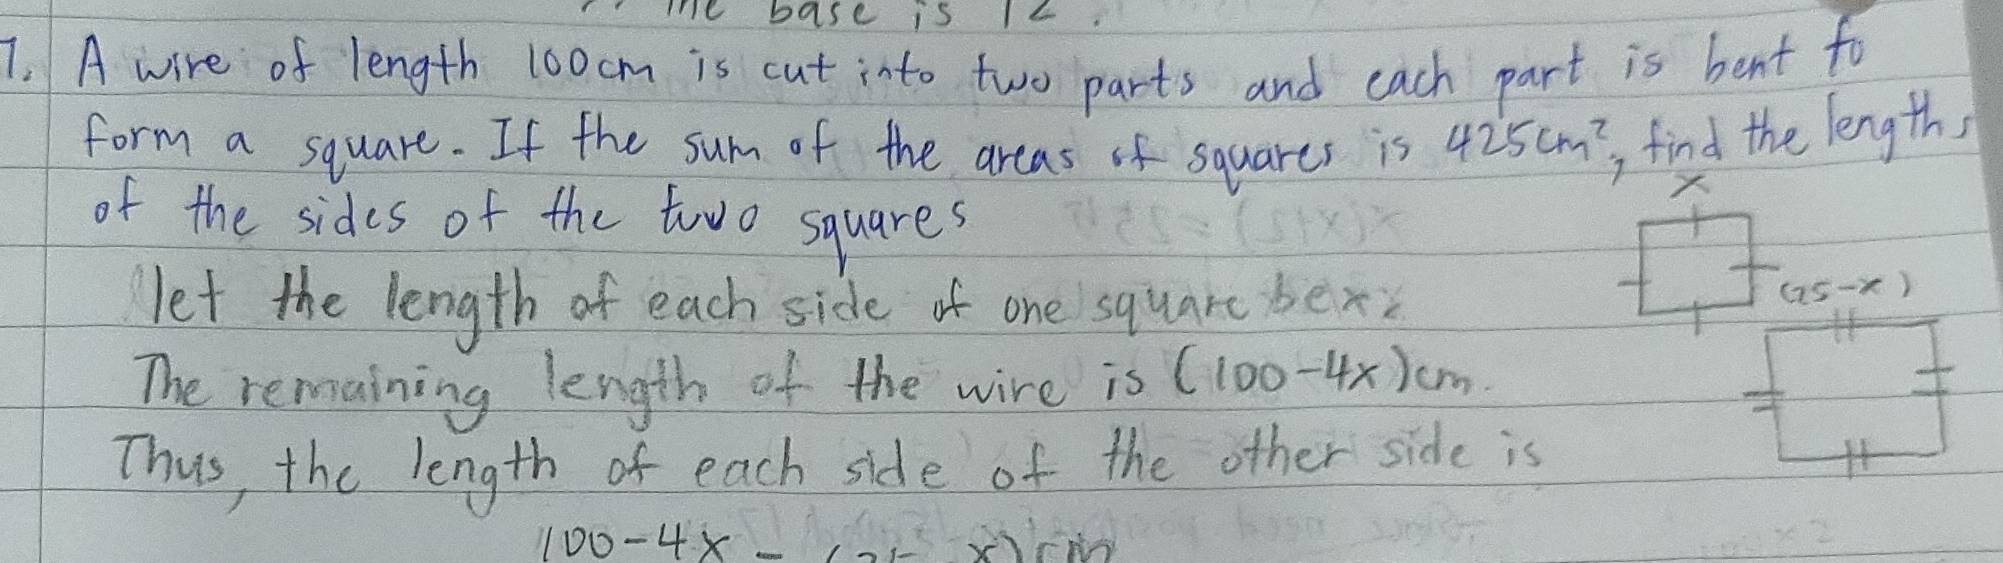 the base is 12.
7. A wire of length 100cm is cut into two parts and each part is bent to
form a square. If the sum of the areas of squares is 425cm², find the lengths
of the sides of the two squares
x
let the length of each side of one square be x.
(25-x)
The remaining length of the wire is (100-4x)cm.
Thus, the length of each side of the other side is
100-4x = (25-x)cm